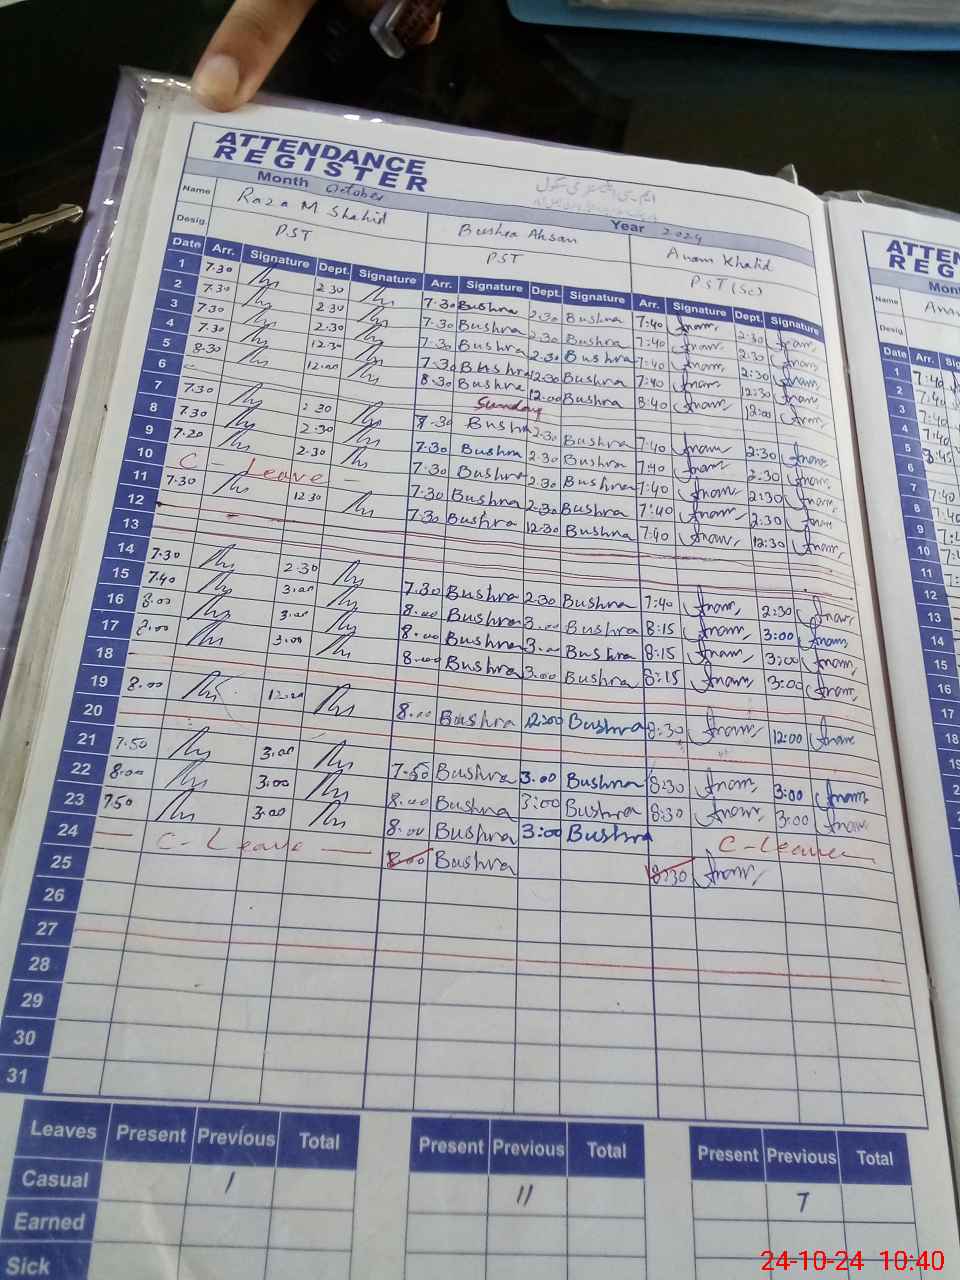 ATTENDANCE
REGISTER
Month October
Year 2024
Name Raza M Shahid Bushra Ahsan Anam Khalid
Desig. PST PST PST (Sc)
Date Arr. Signature Dept. Signature Arr. Signature Dept. Signature Arr. Signature Dept. Signature
1 7.30 2.30 7.30 Bushra 2.30 Bushra 7:40 Anam 2:30 Anam
2 7.30 2.30 7.30 Bushra 2.30 Bushra 7:40 Anam 2:30 Anam
3 7.30 2.30 7.30 Bushra 2.30 Bushra 7:40 Anam 2:30 Anam
4 7.30 12.30 7.30 Bushra 12.30 Bushra 7:40 Anam 12:30 Anam
5 8.30 12.00 8.30 Bushra 12.00 Bushra 8:40 Anam 12:00 Anam
6 Sunday
7 7.30 2.30 Bushra 2.30 Bushra 7:40 Anam 2:30 Anam
8 7.30 2.30 7.30 Bushra 2.30 Bushra 7:40 Anam 2:30 Anam
9 7.20 2.30 7.30 Bushra 2.30 Bushra 7:40 Anam 2:30 Anam
10 C - Leave - 7.30 Bushra 2.30 Bushra 7:40 Anam 2:30 Anam
11 7.30 12.30 7.30 Bushra 12.30 Bushra 7:40 Anam 12:30 Anam
12
13
14 7.30 2.30 7.30 Bushra 2.30 Bushra 7:40 Anam 2:30 Anam
15 7.40 3.00 8.00 Bushra 3.00 Bushra 8:15 Anam 3:00 Anam
16 8.00 3.00 8.00 Bushra 3.00 Bushra 8:15 Anam 3:00 Anam
17 8.00 3.00 8.00 Bushra 3.00 Bushra 8:15 Anam 3:00 Anam
18
19 8.00 12.00 8.00 Bushra 12:00 Bushra 8:30 Anam 12:00 Anam
20
21 7.50 3.00 7.50 Bushra 3.00 Bushra 8:30 Anam 3:00 Anam
22 8.00 3.00 8.00 Bushra 3:00 Bushra 8:30 Anam 3:00 Anam
23 7.50 3.00 8.00 Bushra 3:00 Bushra C-Leave
24 — C - Leave — 8.00 Bushra 8:30 Anam
25
26
27
28
29
30
31
Leaves Present Previous Total Present Previous Total Present Previous Total
Casual 1 11 7
Earned
Sick
ATTEN
REG
Mont
Name
Desig.
Date Arr. S
1 7:40
2 7:40
3 7:40
4 7:40
5 8:45
6
7 7:40
8 7:40
9
10
11
12
13
14
15
16
17
18
24-10-24 10:40